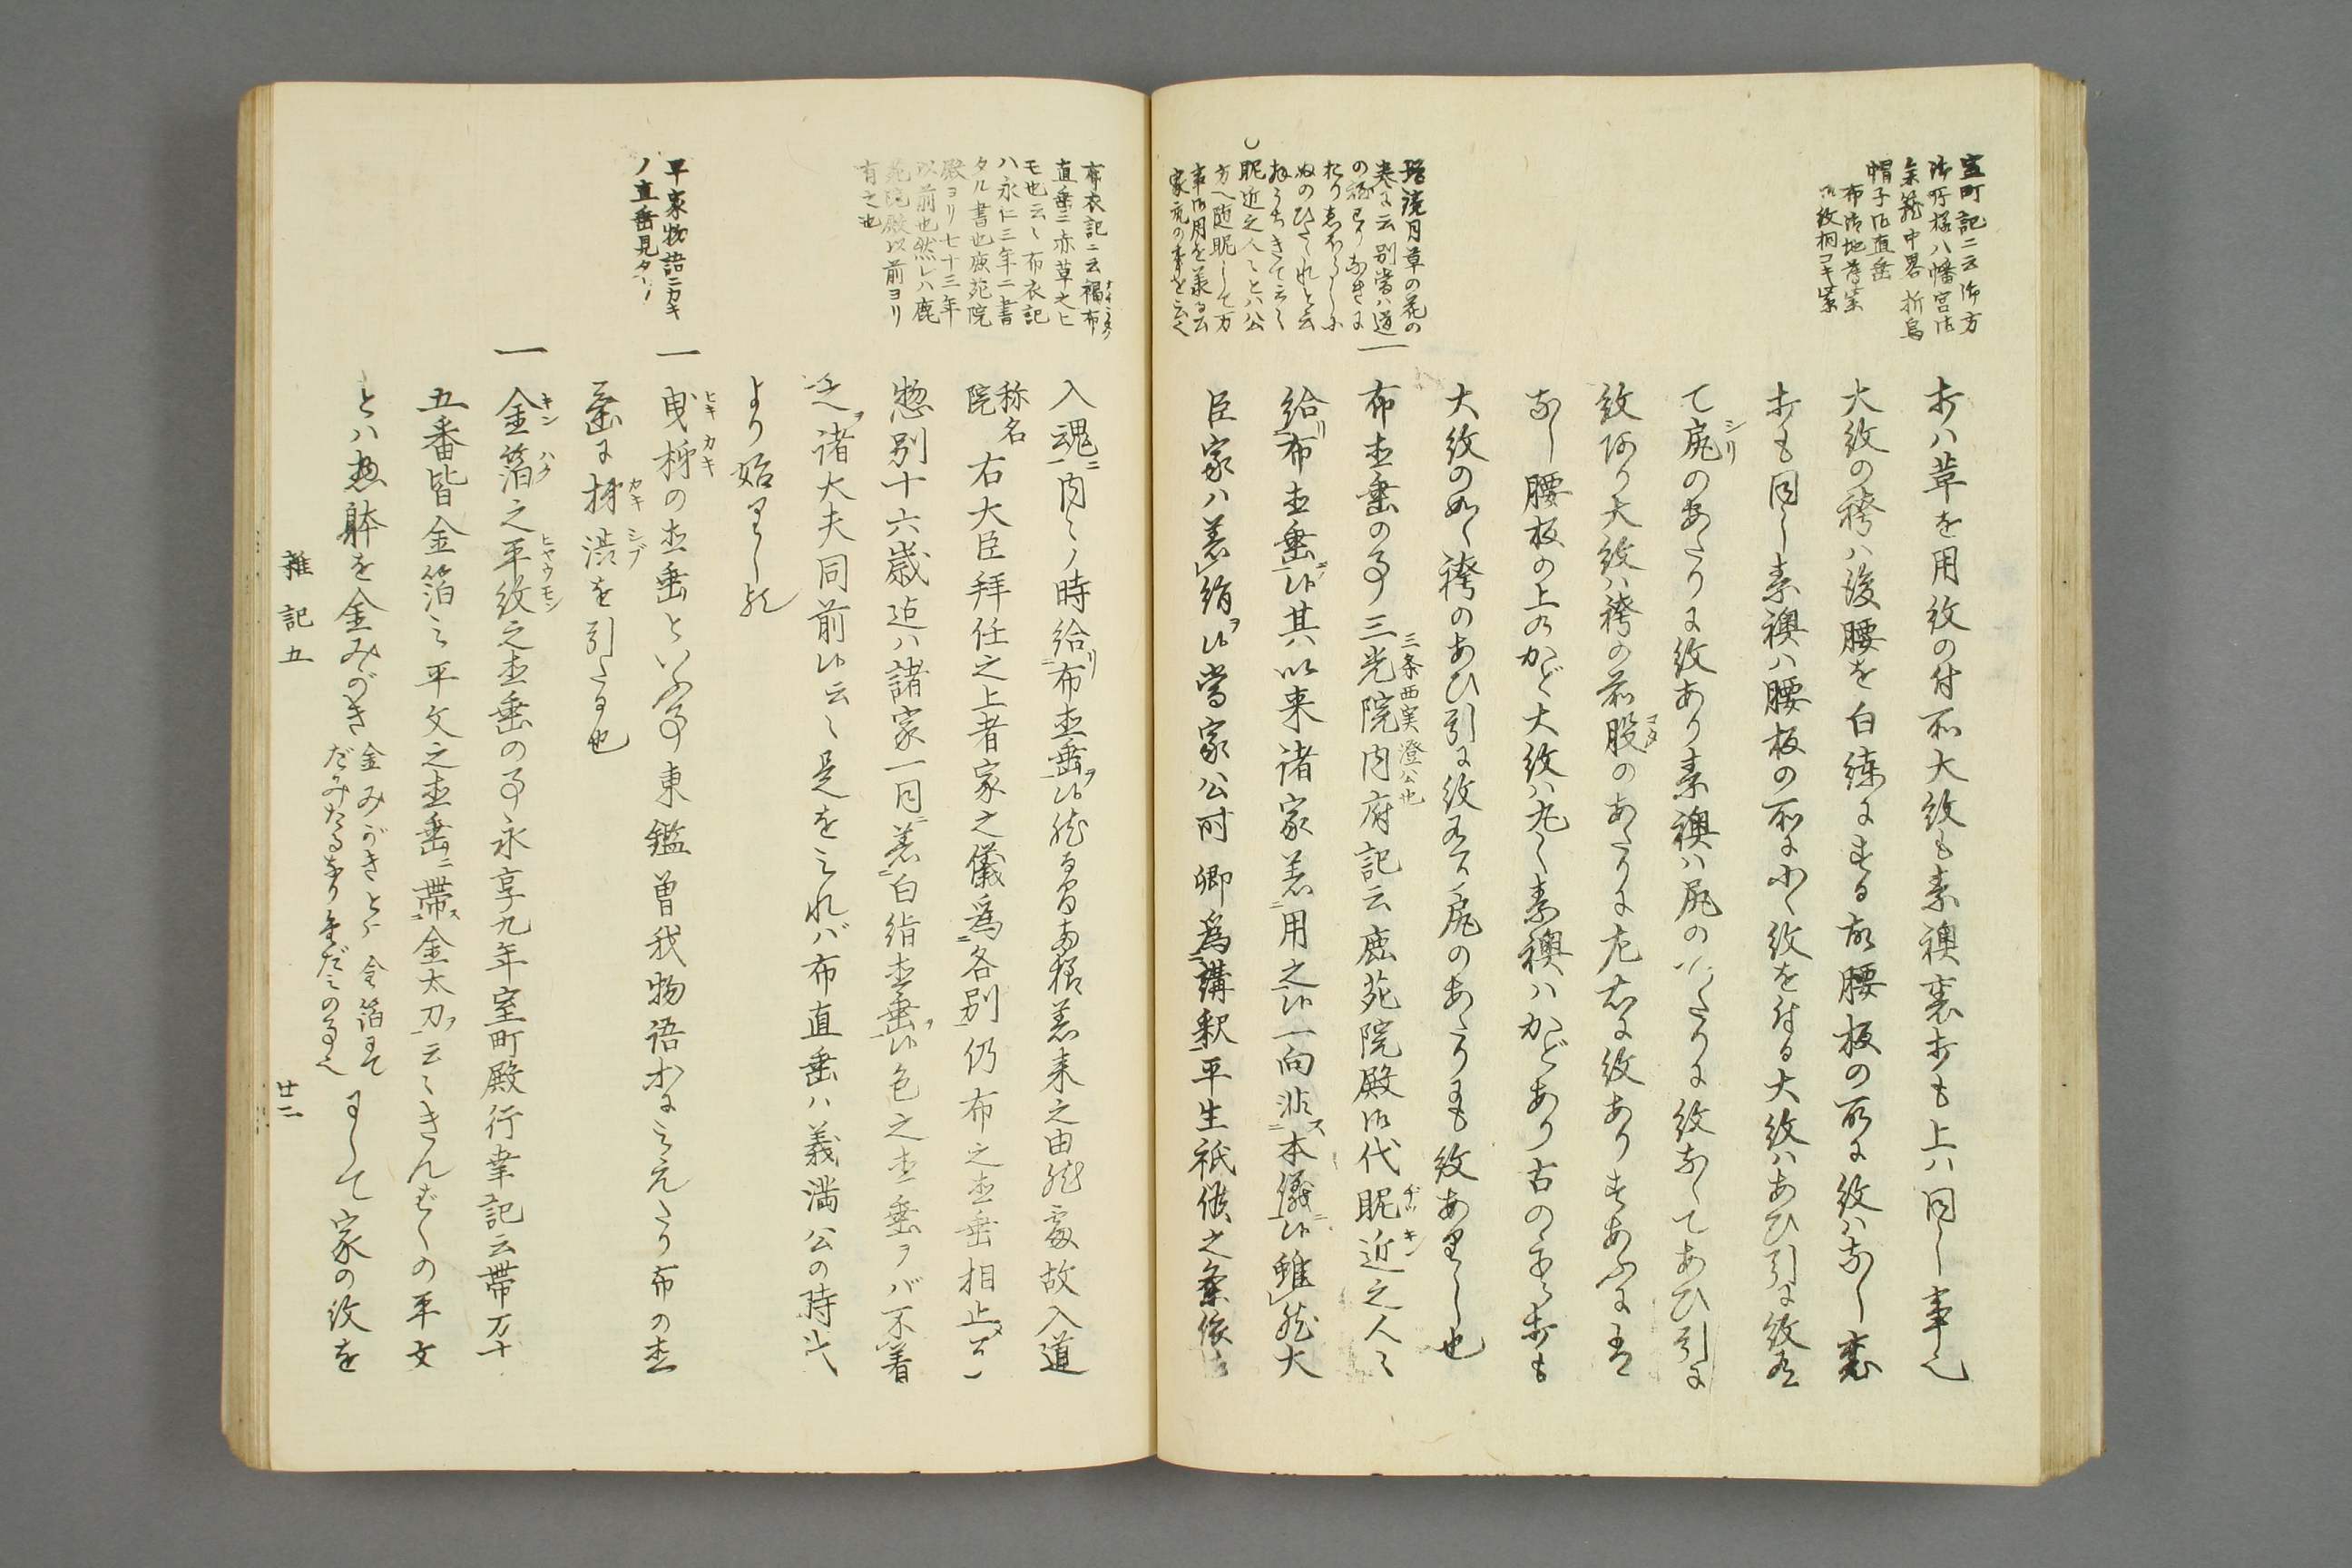 室町記ニ云御方
御所様八幡宮御
参籠中畧折烏
帽子御直垂
布御地薄紫
御紋桐コキ紫
ホハ革を用紋の付所大紋も素襖裏ホも上ハ同し事也
大紋の袴ハ後腰を白練にする故腰板の所に紋ハなし裏
ホも同し素襖ハ腰板の所に小く紋を付る大紋ハあひ引に紋有
て尻のあたりに紋あり素襖ハ尻のあたりに紋なくてあひ引に
紋あり大紋ハ袴の前股のあたりに左右に紋ありすあふには
なし腰板の上のかど大紋ハ丸く素襖ハかどあり古の
大紋の如く袴のあひ引に紋有て尻のあたりにも紋ありし也
増鏡月草の花の
巻に云別当ハ道
眤近之人々とハ公
方へ随眤して万
事御用を兼る公
一布直垂の事三光院内府記云鹿苑院殿御代眤近之人々
三条西実澄公也
給布直垂候其以来諸家着用之候一向非本儀候雖然大
臣家ハ着絹候当家公時卿為講釈平生祇候之条依
布衣記ニ云褐布
直垂ニ赤革之ヒ
モ也云々布衣記
ハ永仁三年ニ書
タル書也鹿苑院
殿ヨリ七十三年
以前也然レハ鹿
苑院殿以前ヨリ
有之也
入魂内々ノ時給布直垂候然る間両様着来之由然處故入道
称名院右大臣拝任之上者家之儀為各別仍布之直垂相止云々
惣別十六歳迄ハ諸家一同着白絹直垂候色之直垂ヲバ不着
之諸大夫同前候云々是をみれバ布直垂ハ義満公の時代
より始りし也
平家物語ニカキ
ノ直垂見タリ
一曳柹の直垂といふ事東鑑曽我物語ホにみえたり布の直
垂に柹渋を引たる也
一金箔之平紋之直垂の事永享九年室町殿行幸記云帯刀十
五番皆金箔ミ平文之直垂ニ帯金太刀云々きんぱくの平文
とハ惣躰を金みがき金みがきとハ金箔にてだみたるなり金だミの事也にして家の紋を
雑記五
廿二